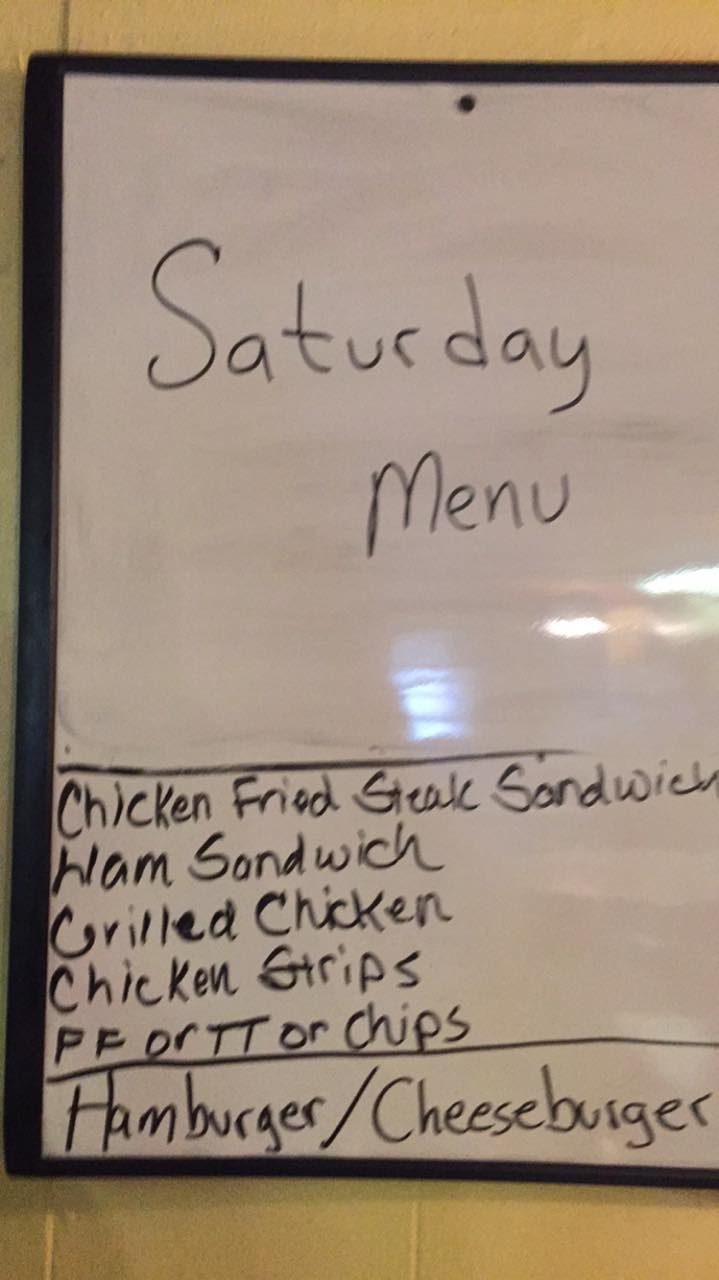 Saturday
Menu
Chicken Fried Steak Sandwich
Ham Sandwich
Grilled Chicken
Chicken Strips
FF or TT or Chips
Hamburger/Cheeseburger